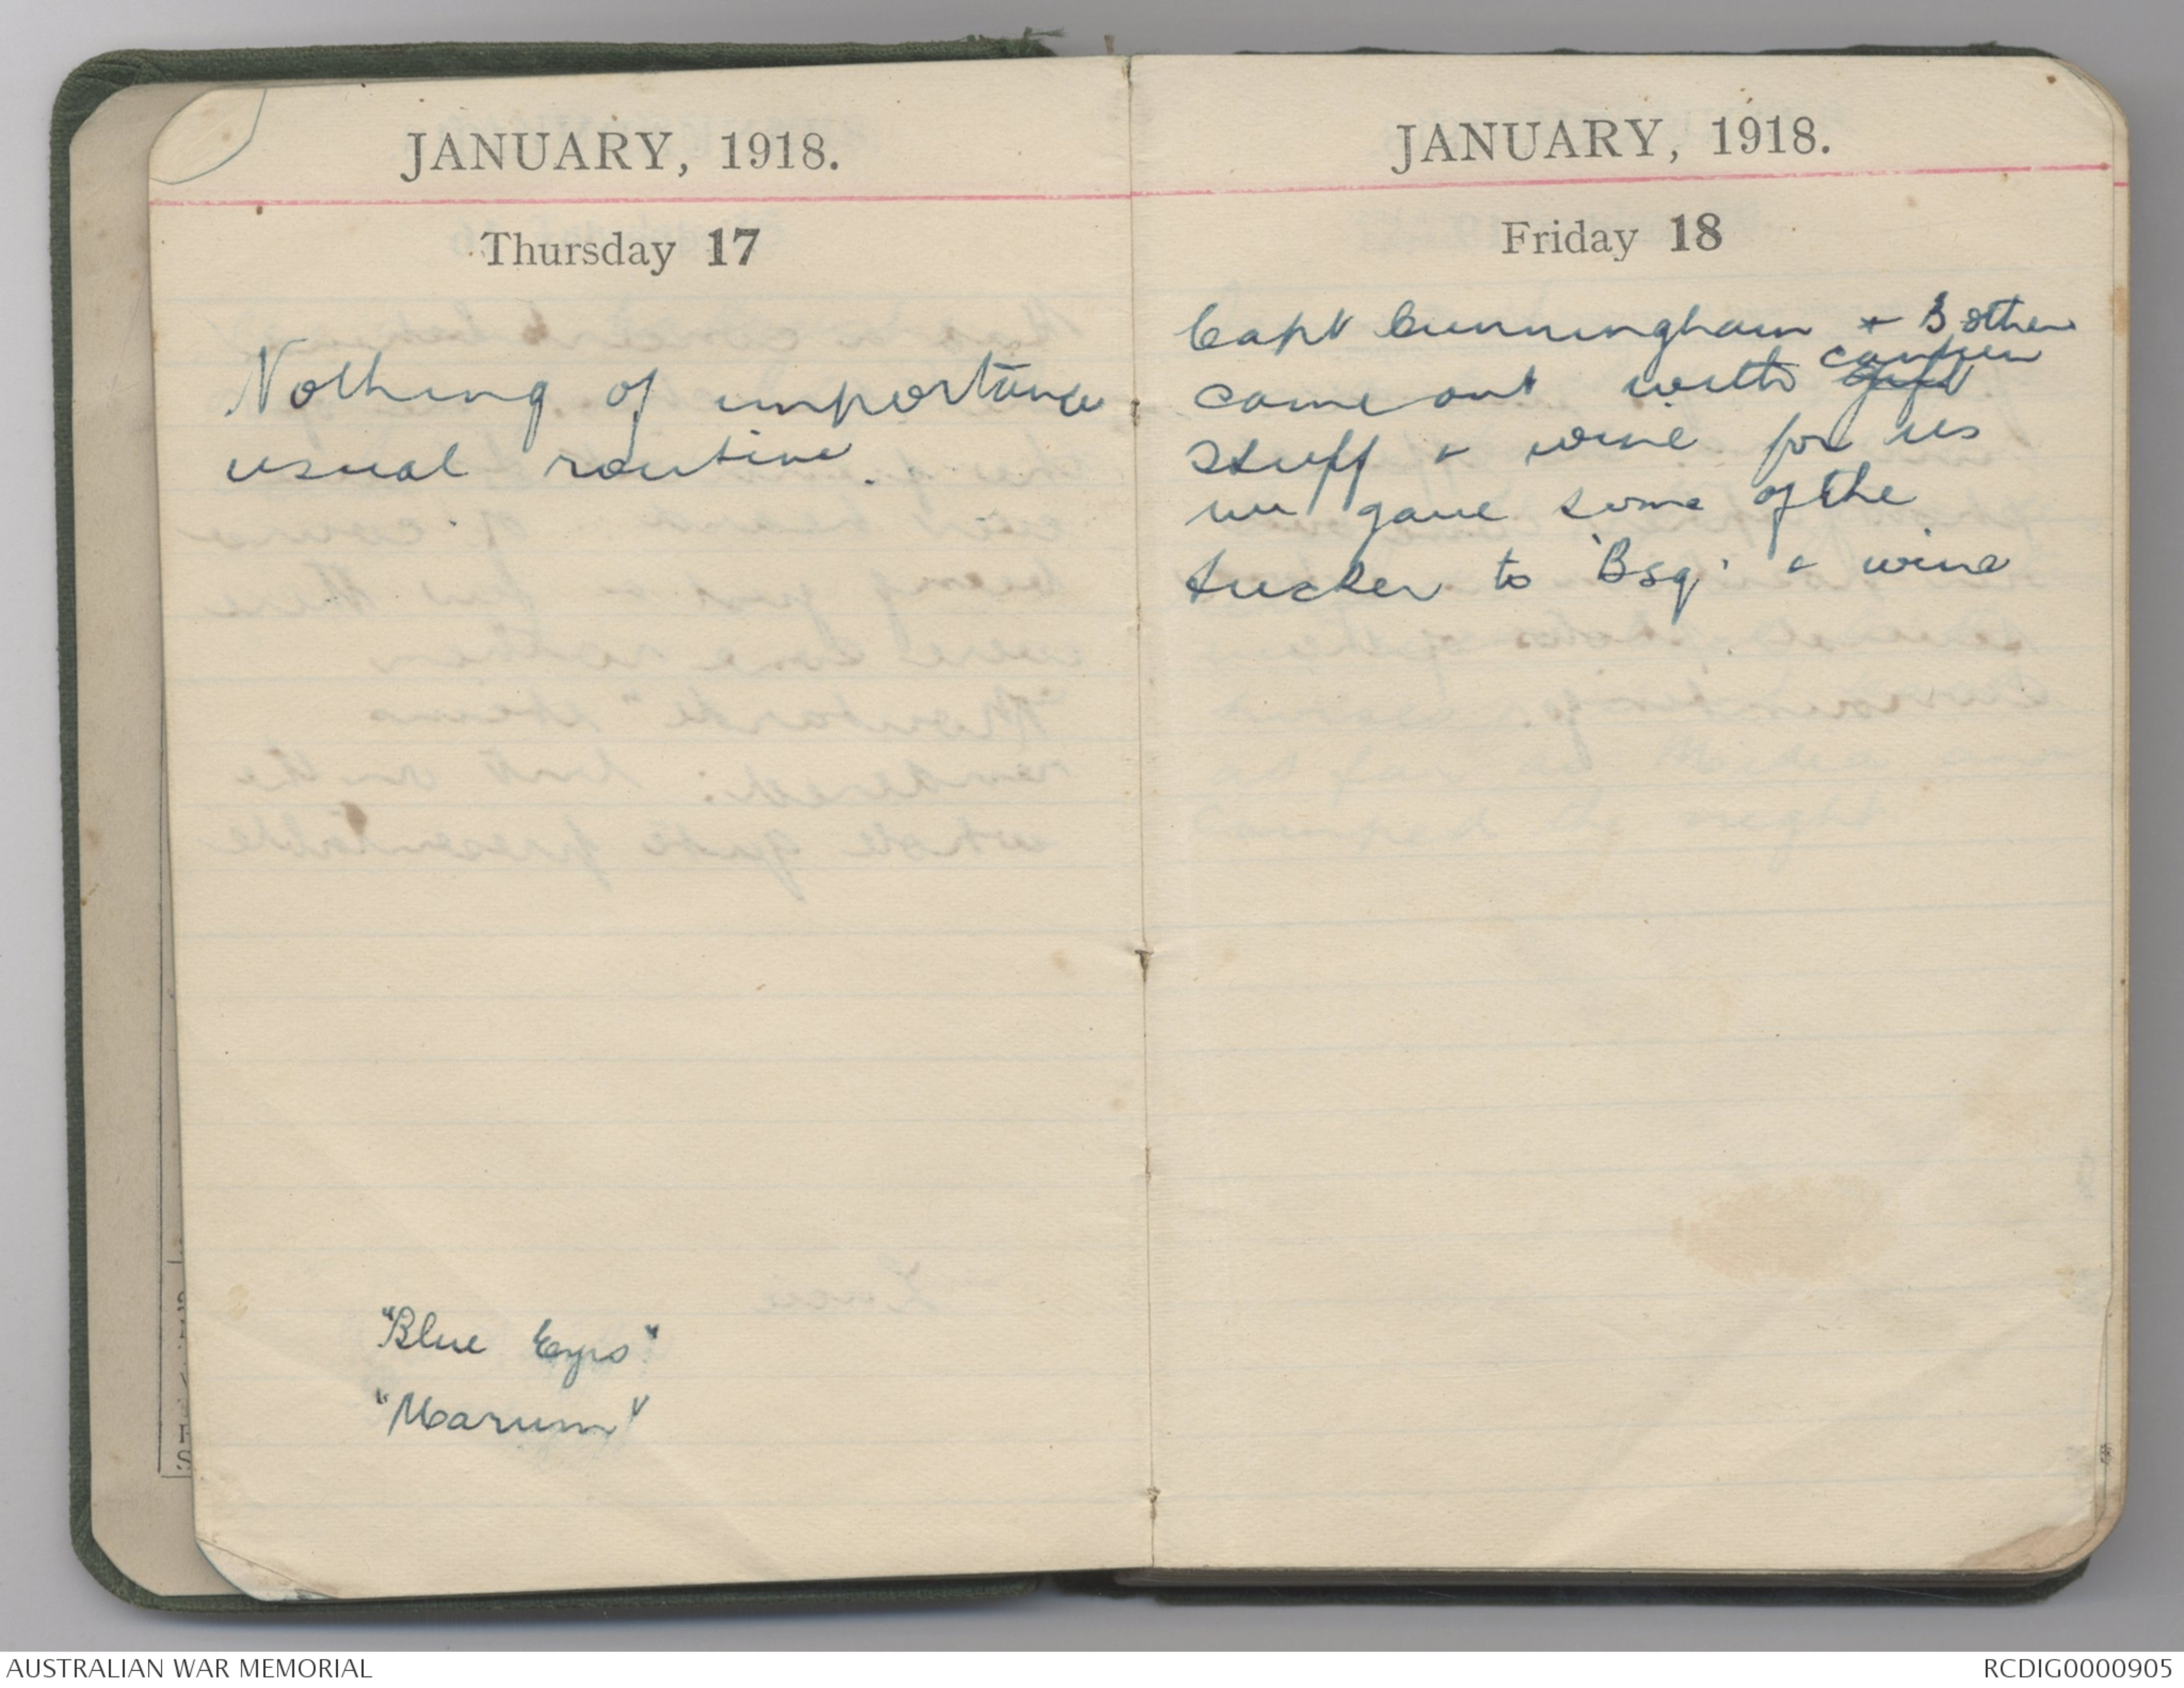 JANUARY, 1918.
Thursday 17
Nothing of importance
usual routine.
"Blue Eyes"
"Marum"
JANUARY, 1918.
Friday 18
Capt Cunningham + 3 other
came out with canteen
stuff + wine for us
we gave some of the
tucker to 'Bsq' + wine
AUSTRALIAN WAR MEMORIAL
RCDIG0000905